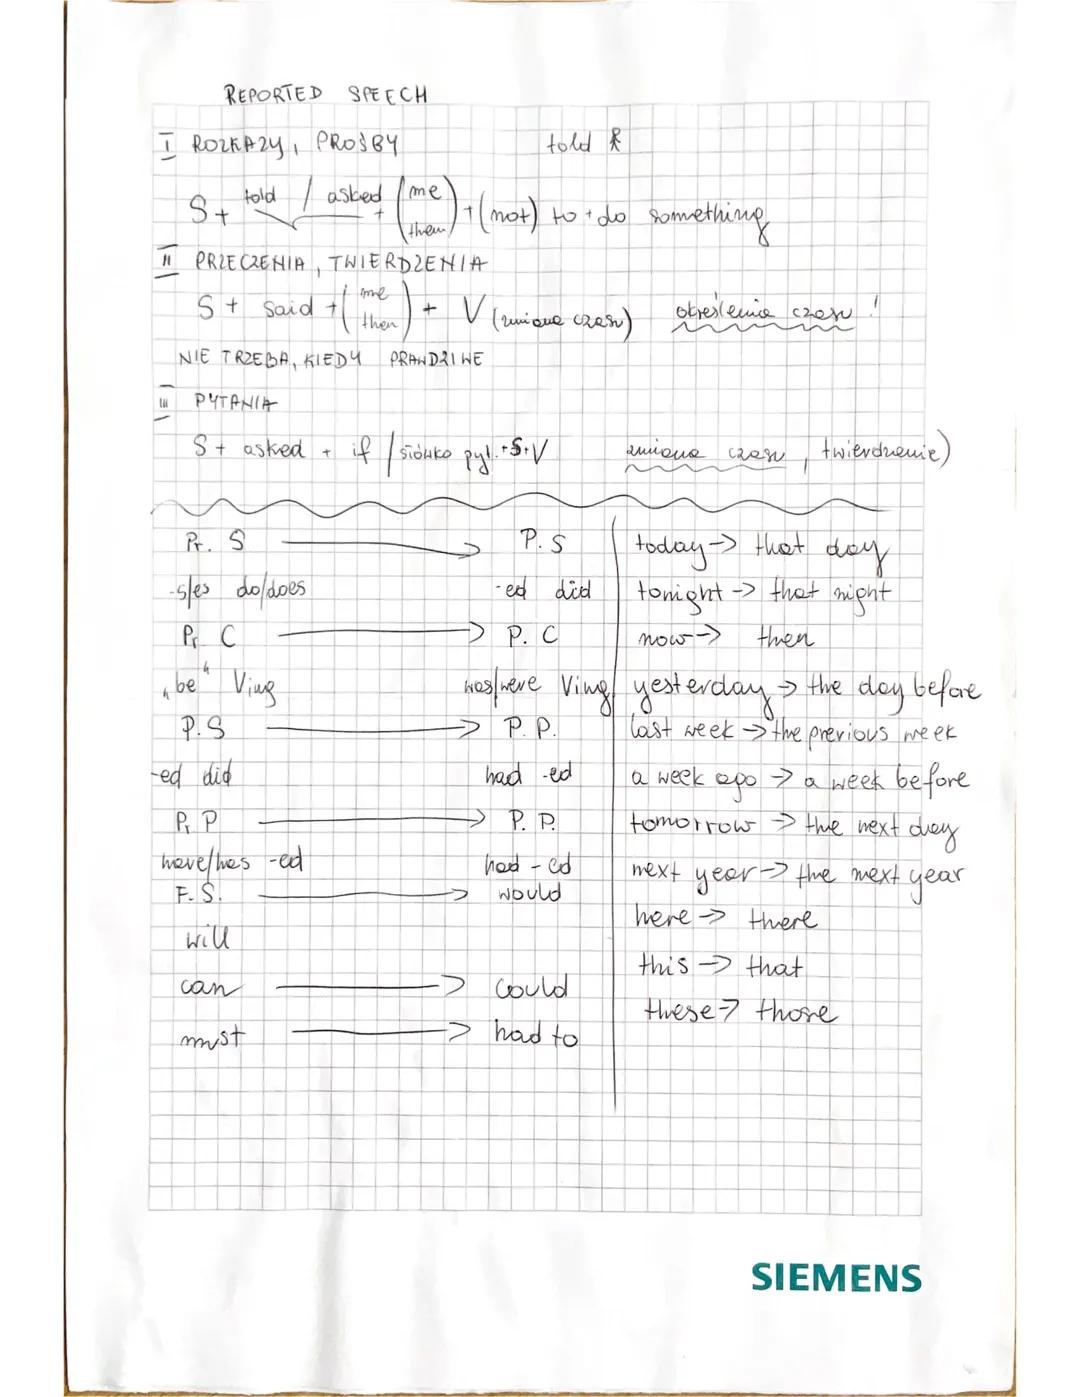 REPORTED SPEECH
I ROZKAZY, PROŚBY told
S + told / asked + (me them) + (not) to + do something
II PRZECZENIA, TWIERDZENIA
S + said + (me then) + V (zmiana czasu) określenia czasu!
NIE TRZEBA, KIEDY PRAWDZIWE
III PYTANIA
S + asked + if / słówko pyt. + S + V zmiana czasu, twierdzenie)
Pr. S → P. S
-s/es do/does -ed did
Pr C → P. C
„be" Ving was/were Ving
P. S → P. P.
-ed did had -ed
Pr P → P. P.
have/has -ed had - ed
F. S. → would
will
can → could
must → had to
today → that day
tonight → that night
now → then
yesterday → the day before
last week → the previous week
a week ago → a week before
tomorrow → the next day
next year → the next year
here → there
this → that
these → those
SIEMENS